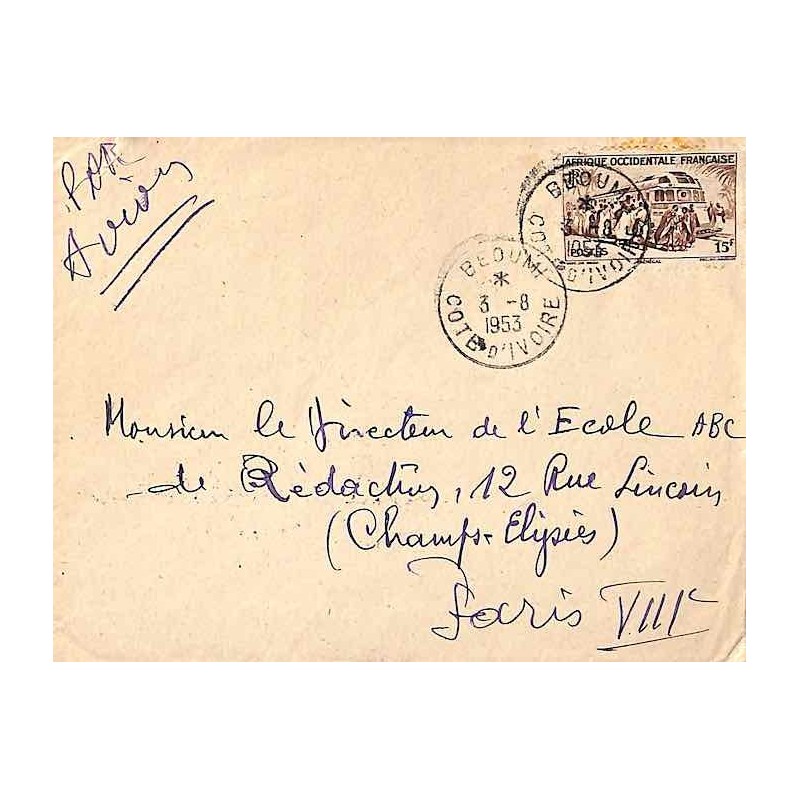 Par
Avion
AFRIQUE OCCIDENTALE FRANÇAISE
RF
POSTES
15F
BEOUMI
3 -8
1953
COTE D'IVOIRE
BEOUMI
3 -8
1953
COTE D'IVOIRE
Monsieur le Directeur de l'Ecole ABC
de Rédaction, 12 Rue Lincoln
(Champs-Elysées)
Paris VIIIe